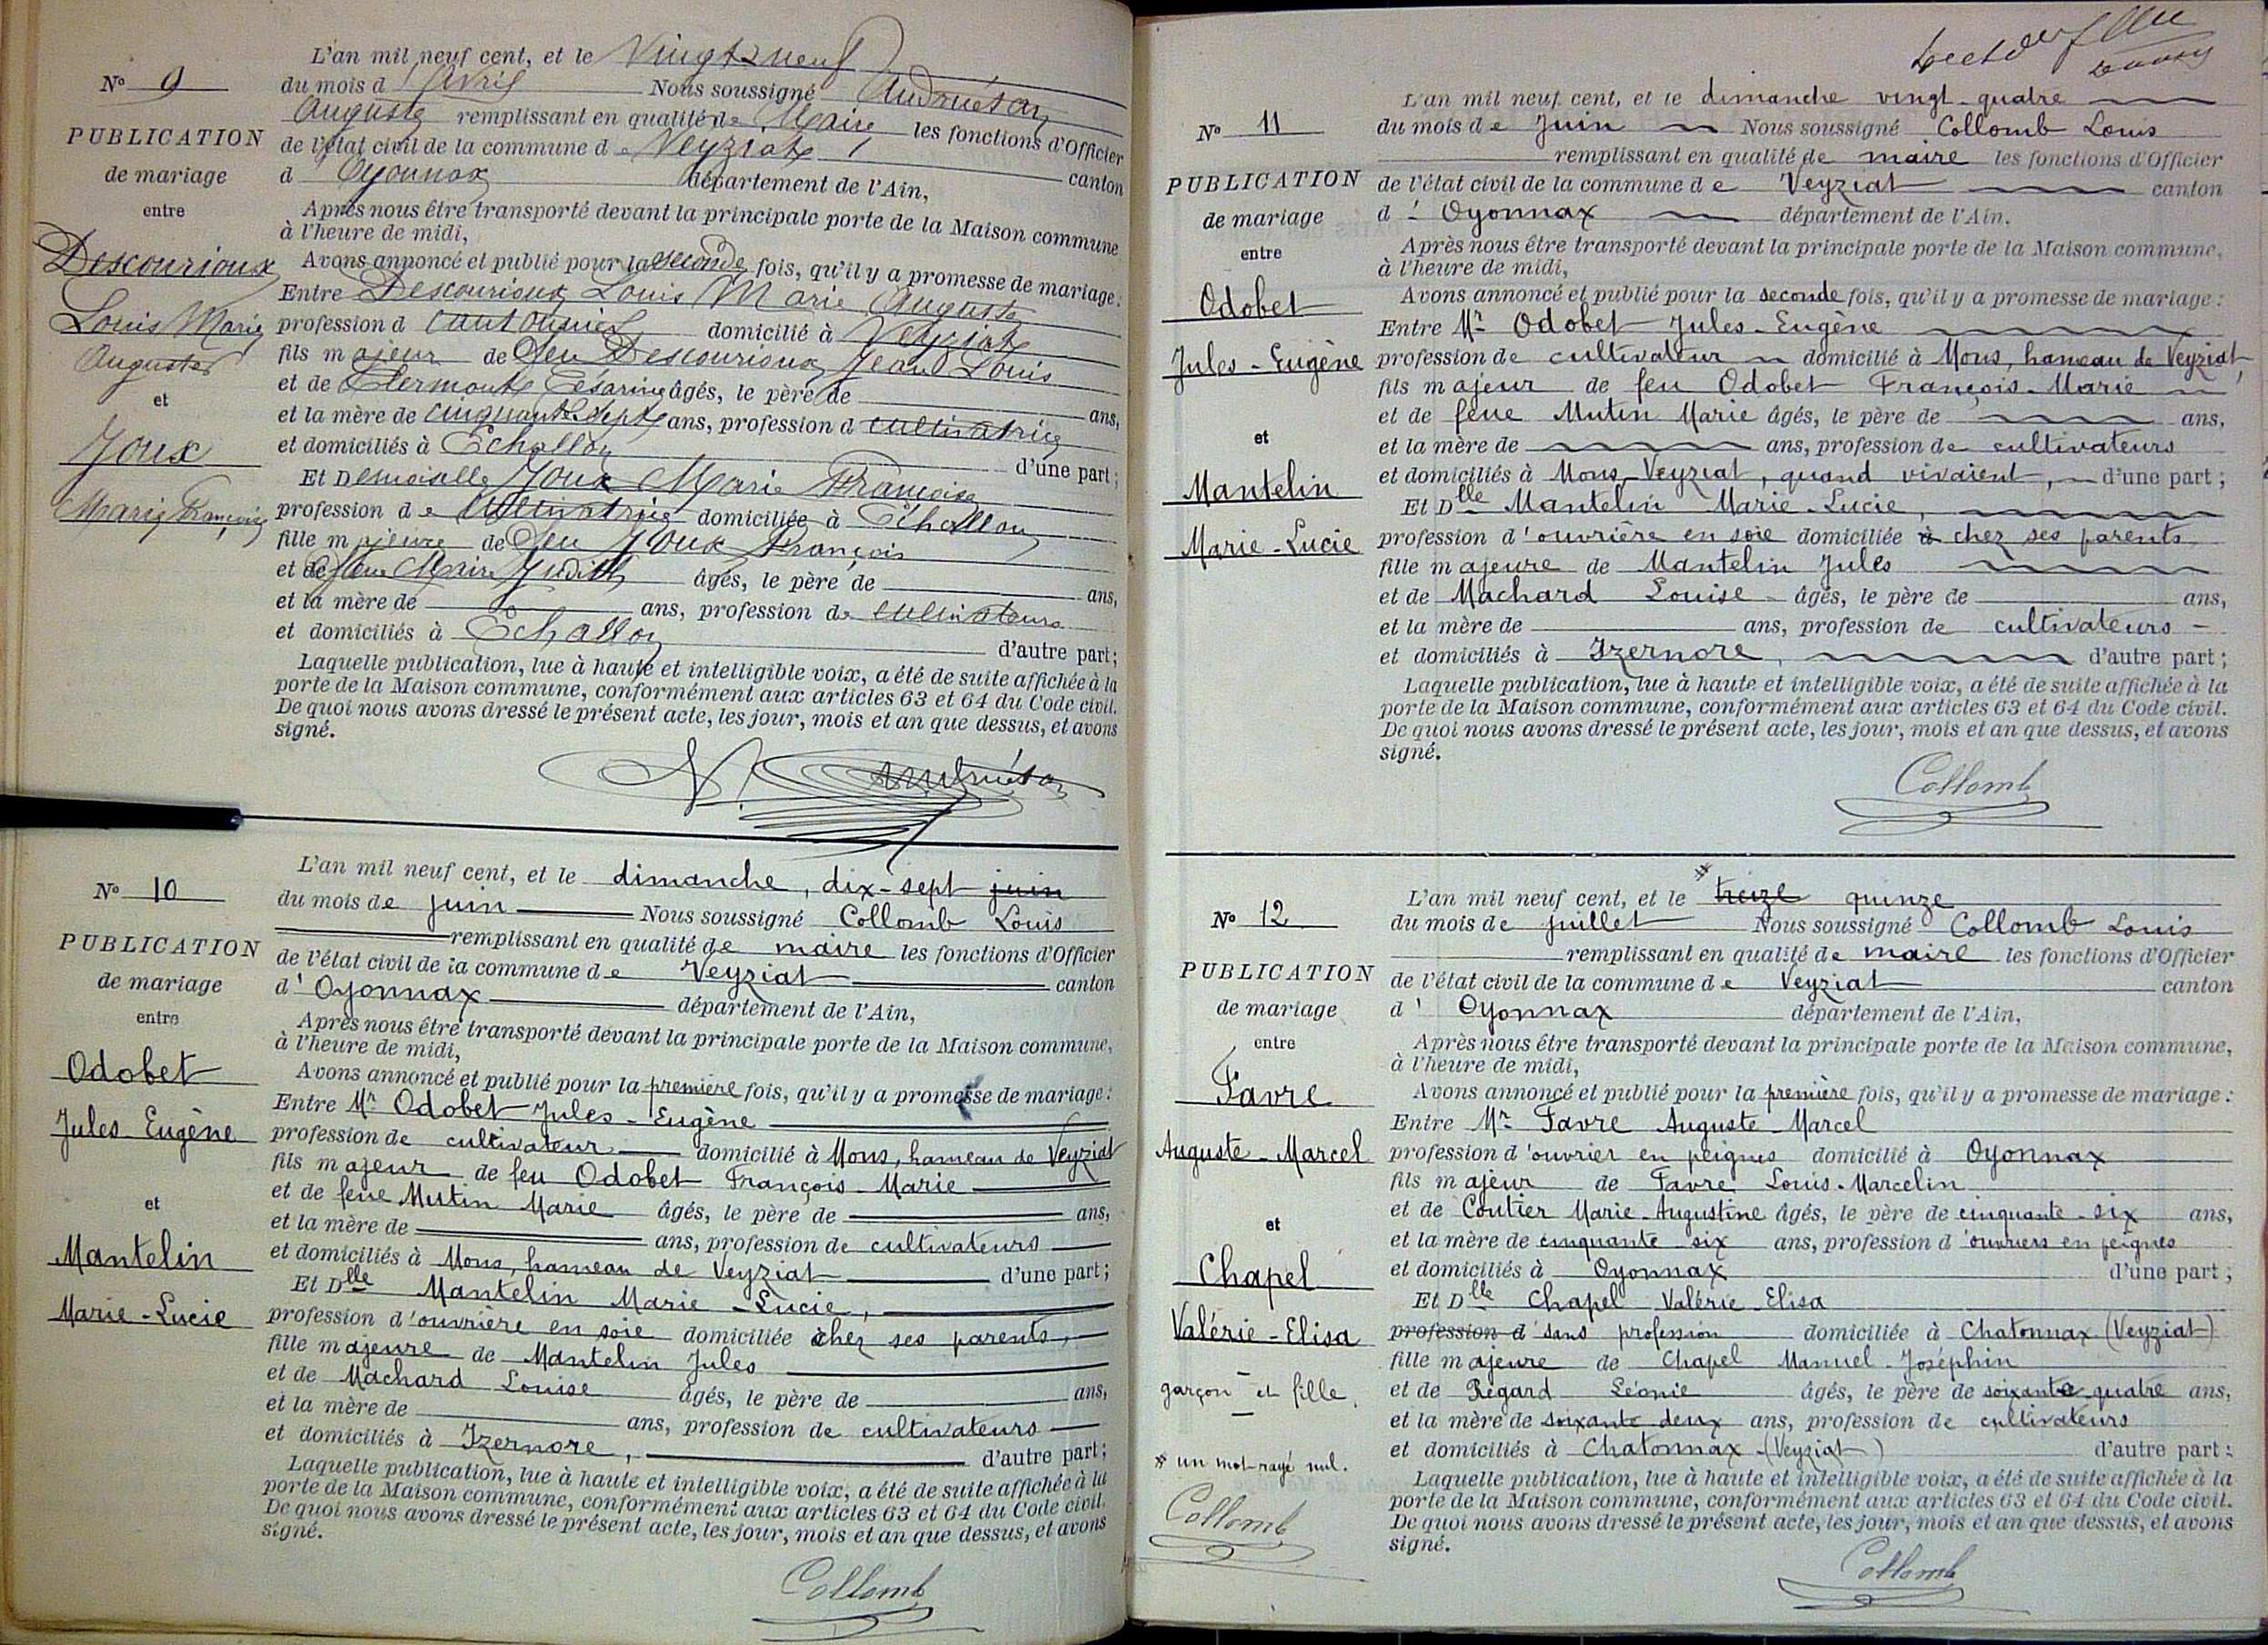 N° 9
PUBLICATION
de mariage
entre
Descourioux
Louis Marie
Auguste
et
Joux
Marie Françoise
L'an mil neuf cent, et le Vingt neuf
du mois d'avril Nous soussigné Andruétan
Auguste remplissant en qualité de Maire les fonctions d'Officier
de l'état civil de la commune de Veyziat canton
d Oyonnax département de l'Ain,
Après nous être transporté devant la principale porte de la Maison commune
à l'heure de midi,
Avons annoncé et publié pour la seconde fois, qu'il y a promesse de mariage:
Entre Descourioux Louis Marie Auguste
profession d cantonnier domicilié à Veyziat
fils majeur de feu Descourioux Jean Louis
et de Clermont Césarine âgés, le père de ans,
et la mère de cinquante sept ans, profession d cultivatrice
et domiciliés à Echallon d'une part;
Et Demoiselle Joux Marie Françoise
profession de cultivatrice domiciliée à Echallon
fille majeure de feu Joux François
et de feue Maire Judith âgés, le père de ans,
et la mère de ans, profession de cultivateurs
et domiciliés à Echallon d'autre part;
Laquelle publication, lue à haute et intelligible voix, a été de suite affichée à la
porte de la Maison commune, conformément aux articles 63 et 64 du Code civil.
De quoi nous avons dressé le présent acte, les jour, mois et an que dessus, et avons
signé.
Andruétan
N° 10
PUBLICATION
de mariage
entre
Odobet
Jules Eugène
et
Mantelin
Marie-Lucie
L'an mil neuf cent, et le dimanche, dix-sept juin
du mois de juin Nous soussigné Collomb Louis
remplissant en qualité de maire les fonctions d'Officier
de l'état civil de la commune de Veyziat canton
d' Oyonnax département de l'Ain,
Après nous être transporté devant la principale porte de la Maison commune,
à l'heure de midi,
Avons annoncé et publié pour la première fois, qu'il y a promesse de mariage:
Entre Mr Odobet Jules-Eugène
profession de cultivateur domicilié à Mons, hameau de Veyziat
fils majeur de feu Odobet François-Marie
et de feue Mutin Marie âgés, le père de ans,
et la mère de ans, profession de cultivateurs
et domiciliés à Mons, hameau de Veyziat d'une part;
Et Dlle Mantelin Marie-Lucie,
profession d'ouvrière en soie domiciliée chez ses parents,
fille majeure de Mantelin Jules
et de Machard Louise âgés, le père de ans,
et la mère de ans, profession de cultivateurs
et domiciliés à Izernore, d'autre part;
Laquelle publication, lue à haute et intelligible voix, a été de suite affichée à la
porte de la Maison commune, conformément aux articles 63 et 64 du Code civil.
De quoi nous avons dressé le présent acte, les jour, mois et an que dessus, et avons
signé.
Collomb
N° 11
PUBLICATION
de mariage
entre
Odobet
Jules-Eugène
et
Mantelin
Marie-Lucie
L'an mil neuf cent, et le dimanche vingt-quatre
du mois de Juin Nous soussigné Collomb Louis
remplissant en qualité de maire les fonctions d'Officier
de l'état civil de la commune de Veyziat canton
d' Oyonnax département de l'Ain.
Après nous être transporté devant la principale porte de la Maison commune,
à l'heure de midi,
Avons annoncé et publié pour la seconde fois, qu'il y a promesse de mariage:
Entre Mr Odobet Jules-Eugène
profession de cultivateur domicilié à Mons, hameau de Veyziat,
fils majeur de feu Odobet François-Marie
et de feue Mutin Marie âgés, le père de ans,
et la mère de ans, profession de cultivateurs
et domiciliés à Mons-Veyziat, quand vivaient, d'une part;
Et Dlle Mantelin Marie-Lucie,
profession d'ouvrière en soie domiciliée à chez ses parents
fille majeure de Mantelin Jules
et de Machard Louise âgés, le père de ans,
et la mère de ans, profession de cultivateurs
et domiciliés à Izernore, d'autre part;
Laquelle publication, lue à haute et intelligible voix, a été de suite affichée à la
porte de la Maison commune, conformément aux articles 63 et 64 du Code civil.
De quoi nous avons dressé le présent acte, les jour, mois et an que dessus, et avons
signé.
Collomb
N° 12
PUBLICATION
de mariage
entre
Favre
Auguste-Marcel
et
Chapel
Valérie-Elisa
garçon et fille.
* un mot rayé nul.
Collomb
L'an mil neuf cent, et le * treize quinze
du mois de juillet Nous soussigné Collomb Louis
remplissant en qualité de maire les fonctions d'Officier
de l'état civil de la commune de Veyziat canton
d' Oyonnax département de l'Ain,
Après nous être transporté devant la principale porte de la Maison commune,
à l'heure de midi,
Avons annoncé et publié pour la première fois, qu'il y a promesse de mariage:
Entre Mr Favre Auguste-Marcel
profession d'ouvrier en peignes domicilié à Oyonnax
fils majeur de Favre Louis-Marcelin
et de Coutier Marie-Augustine âgés, le père de cinquante-six ans,
et la mère de cinquante-six ans, profession d'ouvriers en peignes
et domiciliés à Oyonnax d'une part;
Et Dlle Chapel Valérie-Elisa
profession d' sans profession domiciliée à Chatonnax (Veyziat)
fille majeure de Chapel Manuel-Joséphin
et de Régard Léonie âgés, le père de soixante-quatre ans,
et la mère de soixante-deux ans, profession de cultivateurs
et domiciliés à Chatonnax (Veyziat) d'autre part;
Laquelle publication, lue à haute et intelligible voix, a été de suite affichée à la
porte de la Maison commune, conformément aux articles 63 et 64 du Code civil.
De quoi nous avons dressé le présent acte, les jour, mois et an que dessus, et avons
signé.
Collomb